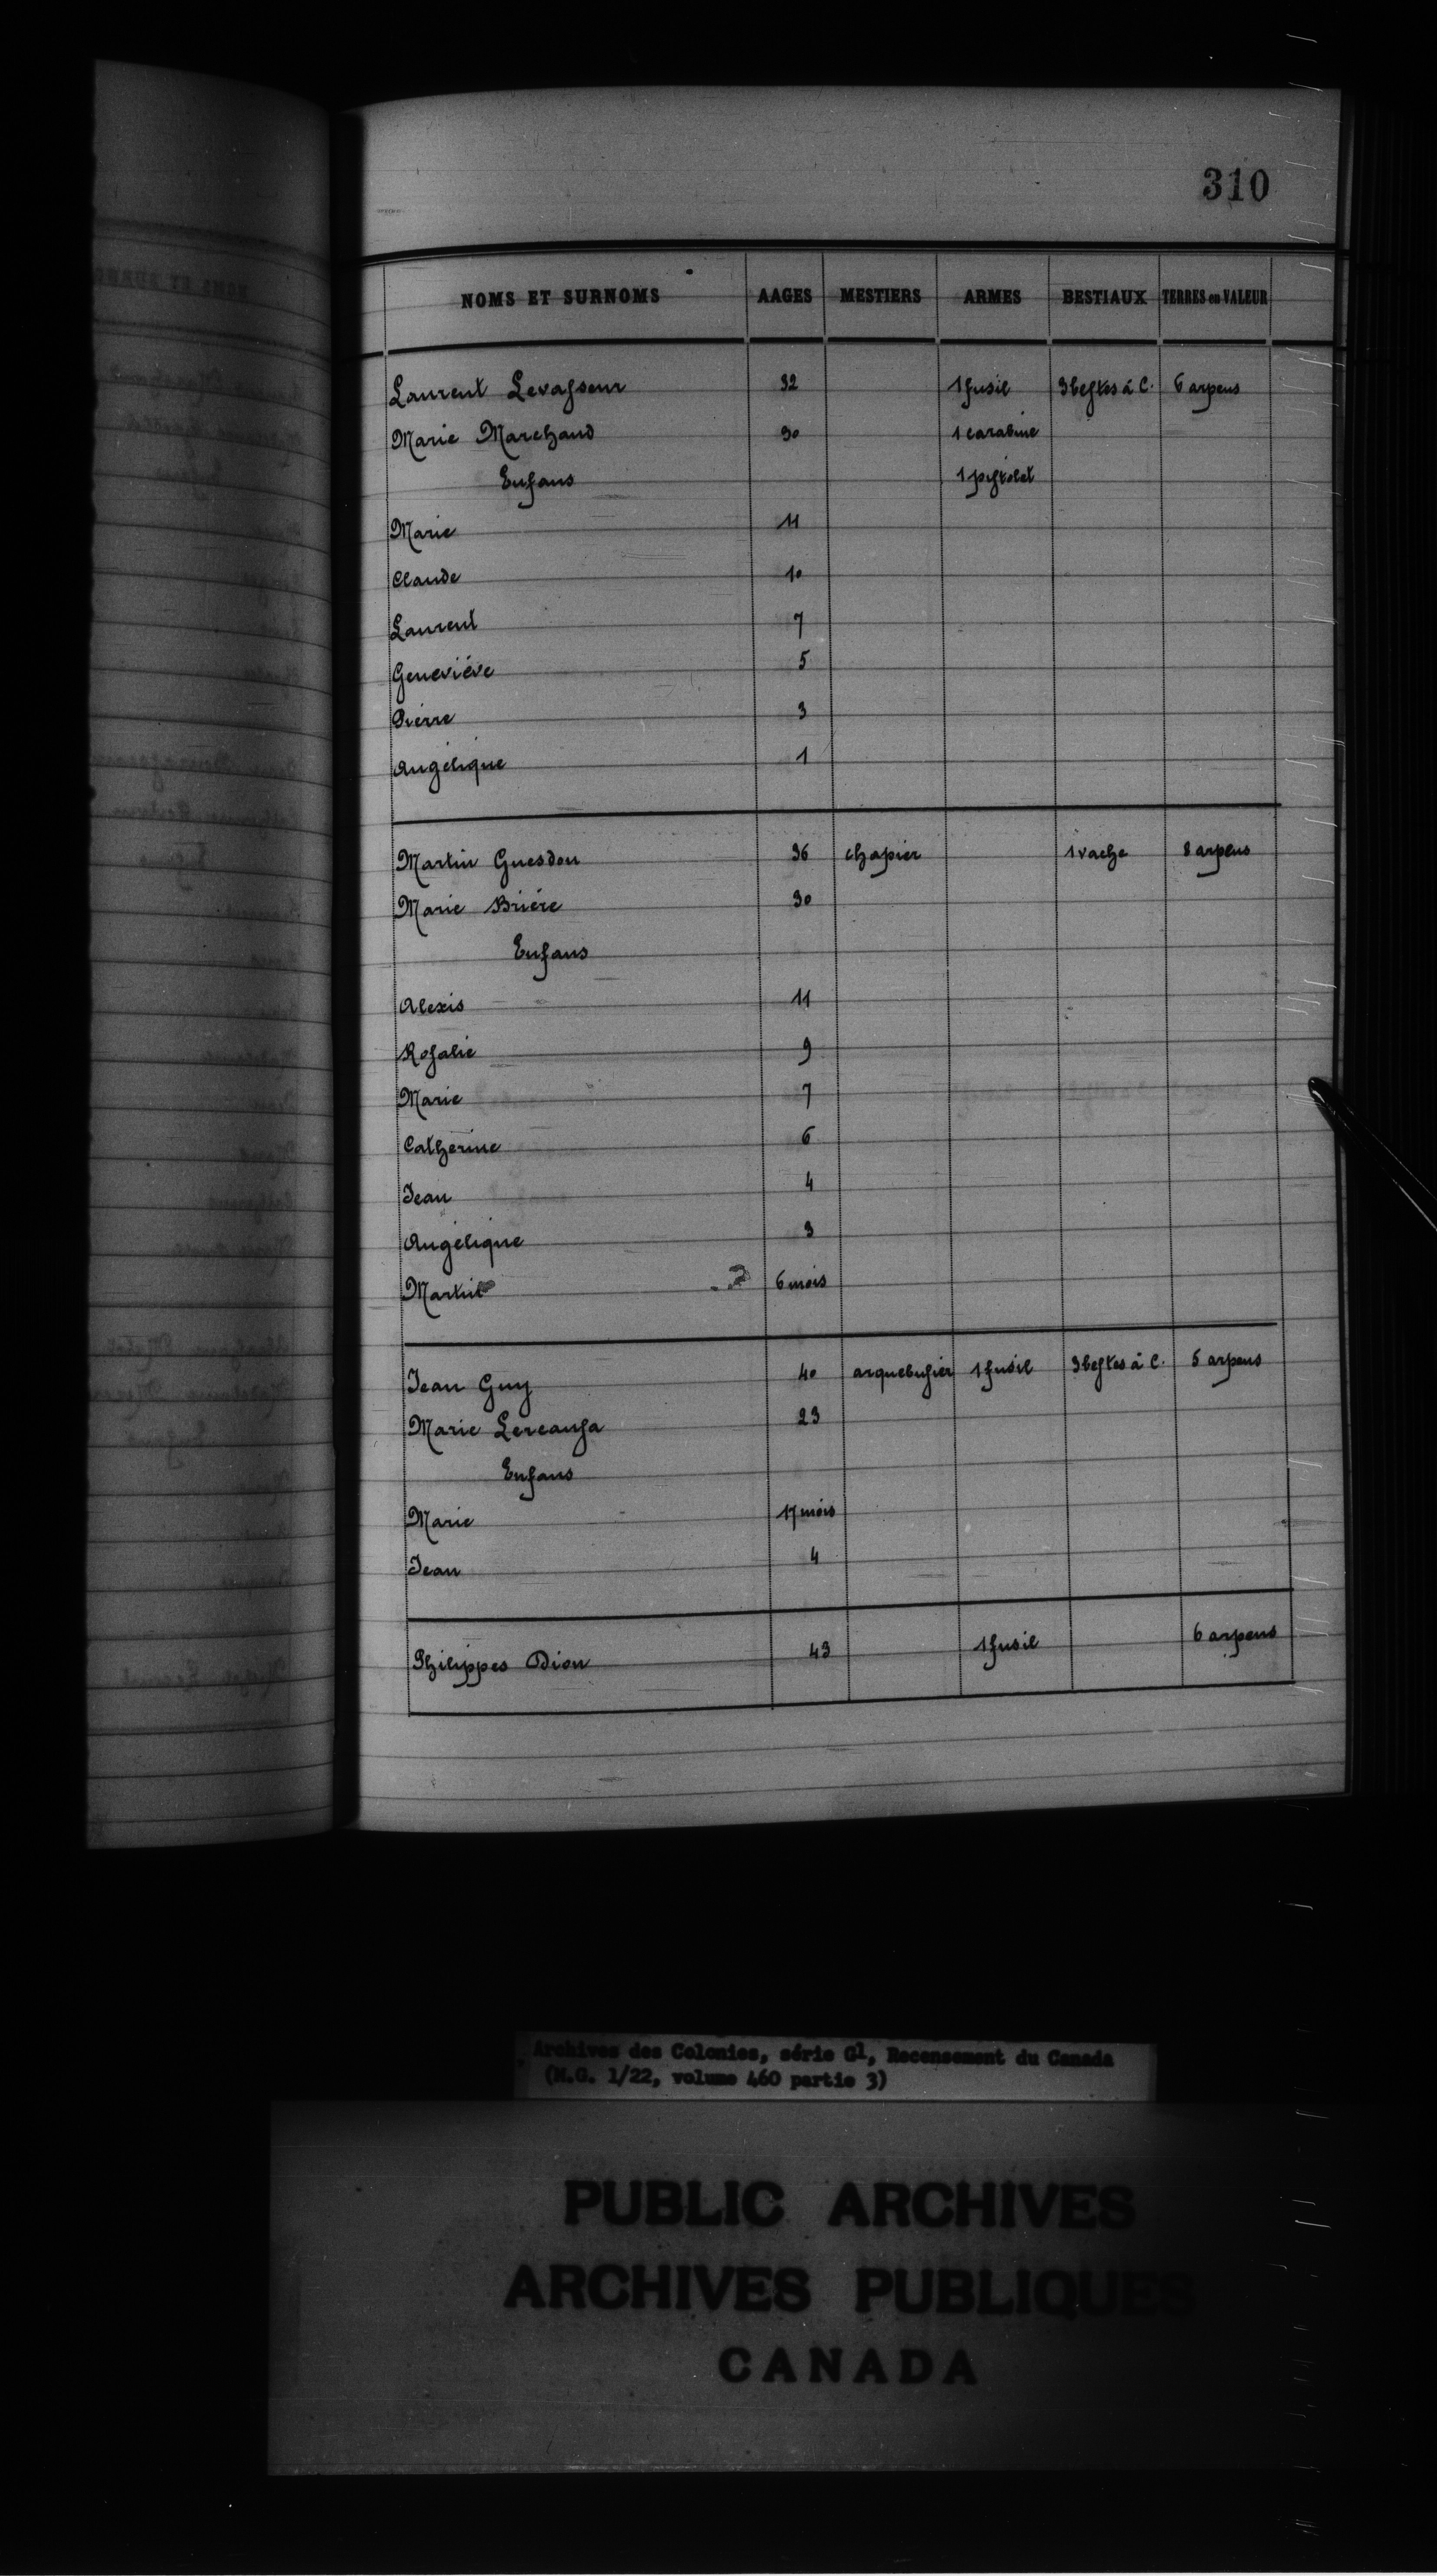 310
NOMS ET SURNOMS AAGES MESTIERS ARMES BESTIAUX TERRES en VALEUR
Laurent Levaſseur 32 1 fusil 3 beſtes à C. 6 arpens
Marie Marchand 30 1 carabine
Enfans 1 piſtolet
Marie 11
Claude 10
Laurent 7
Geneviéve 5
Pierre 3
Angélique 1
Martin Guesdon 36 chapier 1 vache 8 arpens
Marie Briére 30
Enfans
Alexis 11
Roſalie 9
Marie 7
Catherine 6
Jean 4
Angélique 3
6 mois
Jean Guy 40 arquebuſier 1 fusil 3 beſtes à C. 5 arpens
Marie 23
Enfans
Marie 17 mois
Jean 4
Philippes Dion 43 1 fusil 6 arpens
Archives des Colonies, série G1, Recensement du Canada
(M.G. 1/22, volume 460 partie 3)
PUBLIC ARCHIVES
ARCHIVES PUBLIQUES
CANADA